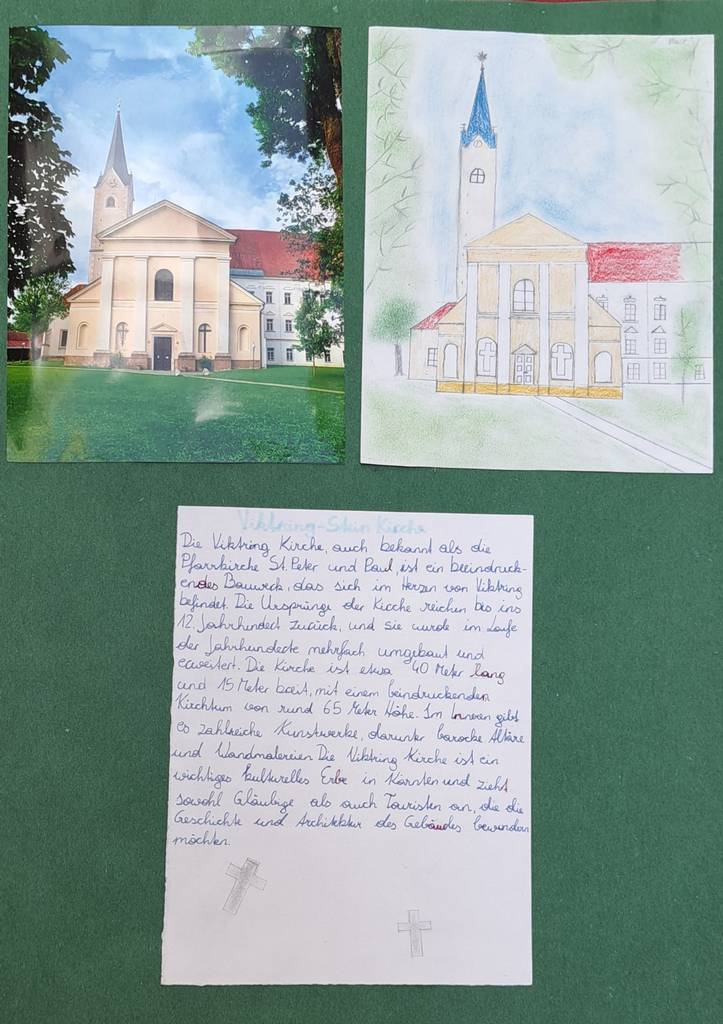 Viktring-Stein Kirche
Die Viktring Kirche, auch bekannt als die
Pfarrkirche St. Peter und Paul, ist ein beeindruck-
endes Bauwerk, das sich im Herzen von Viktring
befindet. Die Ursprünge der Kirche reichen bis ins
12. Jahrhundert zurück, und sie wurde im Laufe
der Jahrhunderte mehrfach umgebaut und
erweitert. Die Kirche ist etwa 40 Meter lang
und 15 Meter breit, mit einem beindruckenden
Kirchturm von rund 65 Meter Höhe. Im Inneren gibt
es zahlreiche Kunstwerke, darunter barocke Altäre
und Wandmalereien. Die Viktring Kirche ist ein
wichtiges kulturelles Erbe in Kärnten und zieht
sowohl Gläubige als auch Touristen an, die die
Geschichte und Architektur des Gebäudes bewundern
möchten.